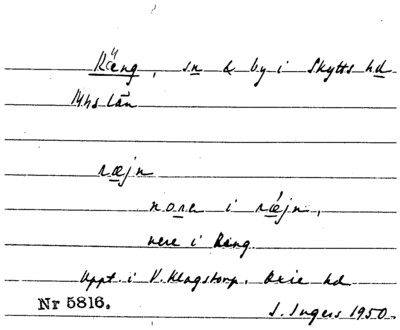 Räng, sn & by i Skytts hd
Mhs län
ræjn
nora i ræjn,
nere i Räng
Uppt. i V. Klagstorp, Oxie hd
Nr 5816.
I. Ingers 1950.